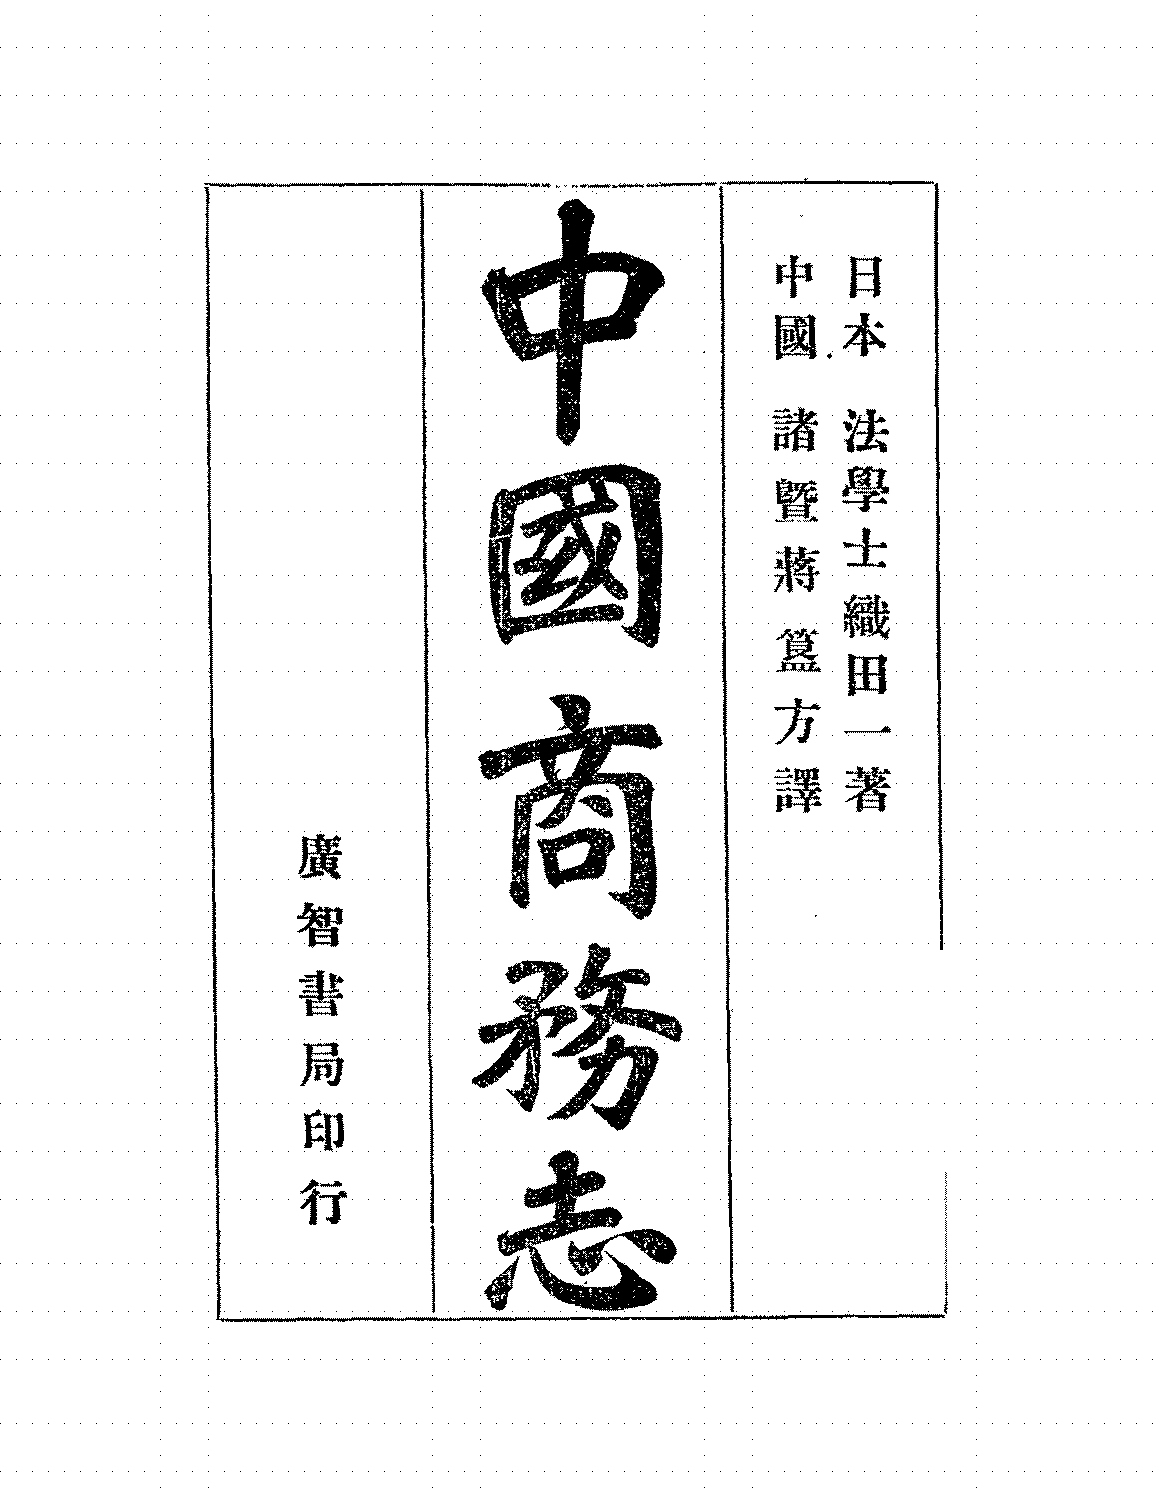 日本 法學士織田一著
中國 諸暨蔣簋方譯
中國商務志
廣智書局印行